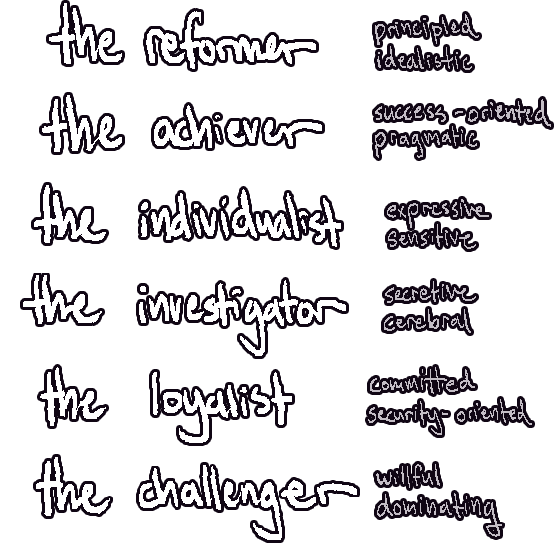 the reformer
principled
idealistic
the achiever
success-oriented
pragmatic
the individualist
expressive
sensitive
the investigator
secretive
cerebral
the loyalist
committed
security-oriented
the challenger
willful
dominating